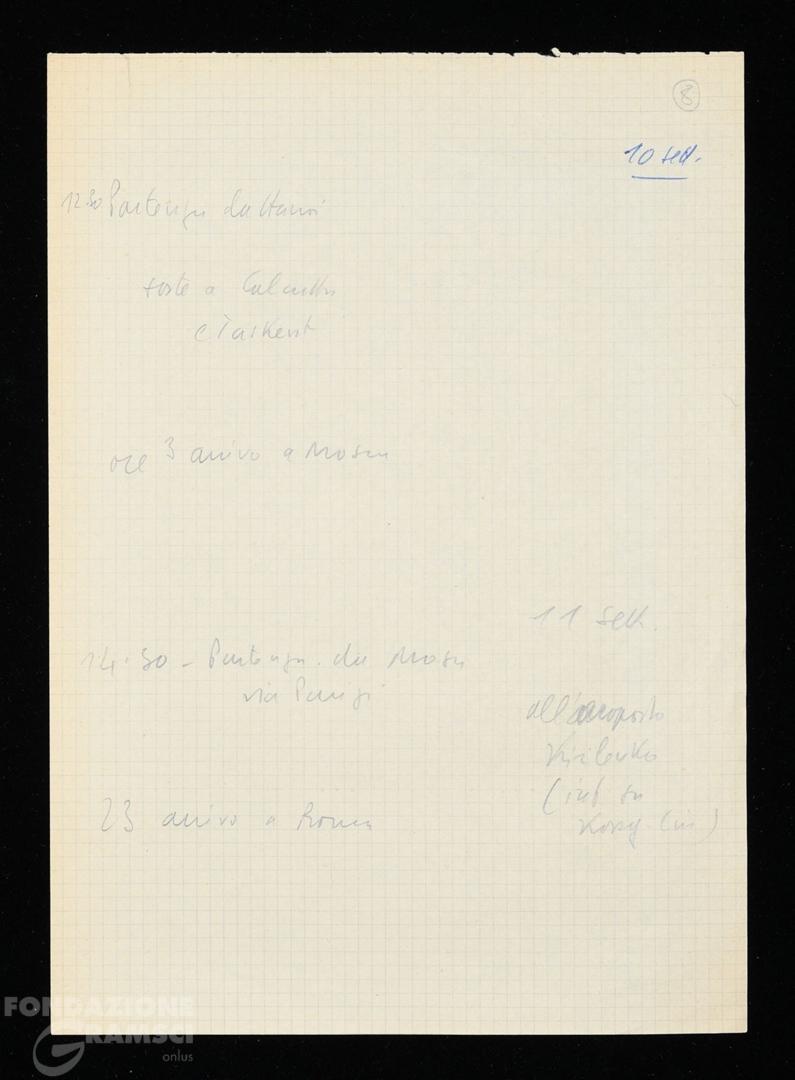 8
10 sett.
12.30 Partenza da Hanoi
soste a Calcutta
e Taskent
ore 3 arrivo a Mosca
11 sett.
14.30 - Partenza da Mosca
via Parigi
all'aeroporto
Kirilenko
(inf su
Kossyghin)
23 arrivo a Roma
FONDAZIONE
GRAMSCI
onlus